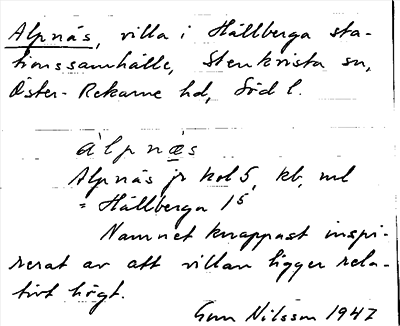 Alpnäs, villa i Hållberga sta-
tionssamhälle, Stenkvista sn,
Öster-Rekarne hd, Söd l.
àlpnæs
Alpnäs jr kol 5, kb, ml
= Hållberga 1⁵
Namnet knappast inspi-
rerat av att villan ligger rela-
tivt högt.
Gun Nilsson 1947